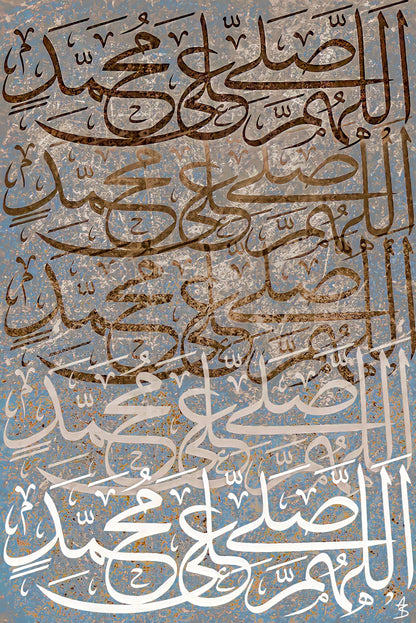 اللَّهُمَّ صَلِّ عَلَى مُحَمَّدٍ
اللَّهُمَّ صَلِّ عَلَى مُحَمَّدٍ
اللَّهُمَّ صَلِّ عَلَى مُحَمَّدٍ
اللَّهُمَّ صَلِّ عَلَى مُحَمَّدٍ
اللَّهُمَّ صَلِّ عَلَى مُحَمَّدٍ